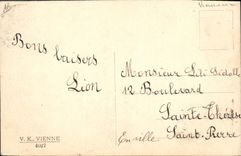 Bons baisers
Lion
Monsieur
12 Boulevard
Sainte-Thérèse
Saint-Pierre
En ville
V. K. VIENNE
4027